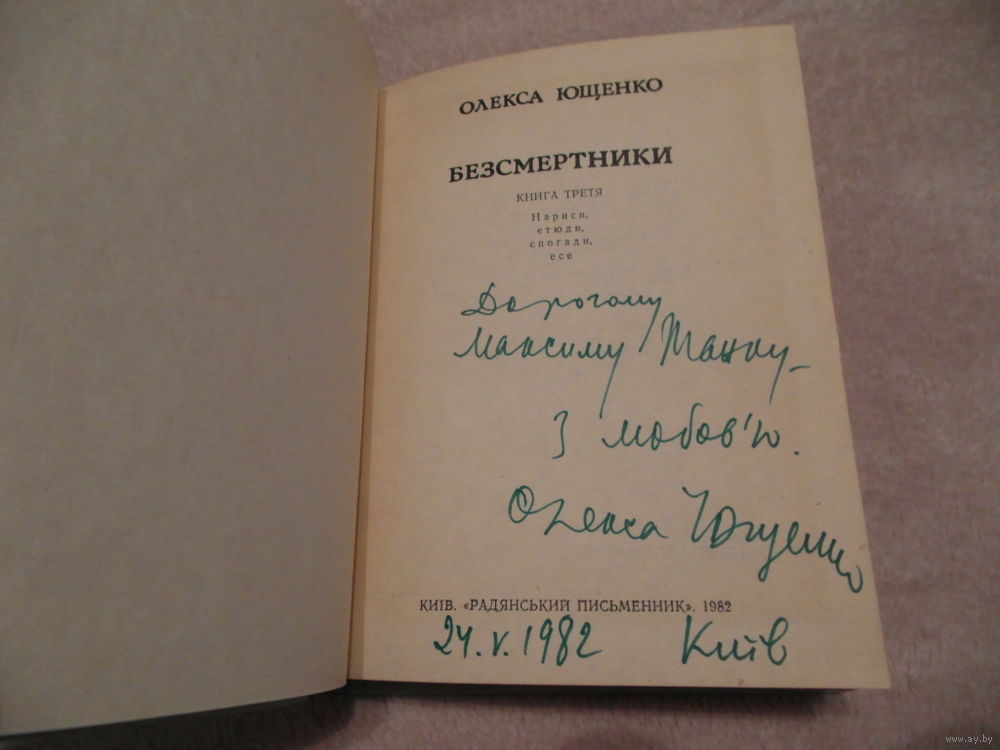 ОЛЕКСА ЮЩЕНКО
БЕЗСМЕРТНИКИ
КНИГА ТРЕТЯ
Нариси,
етюди,
спогади,
есе
Дорогому
Максиму Танку –
З любов'ю.
Олекса Ющенко
КИЇВ. «РАДЯНСЬКИЙ ПИСЬМЕННИК». 1982
24.V.1982 Київ
www.ay.by